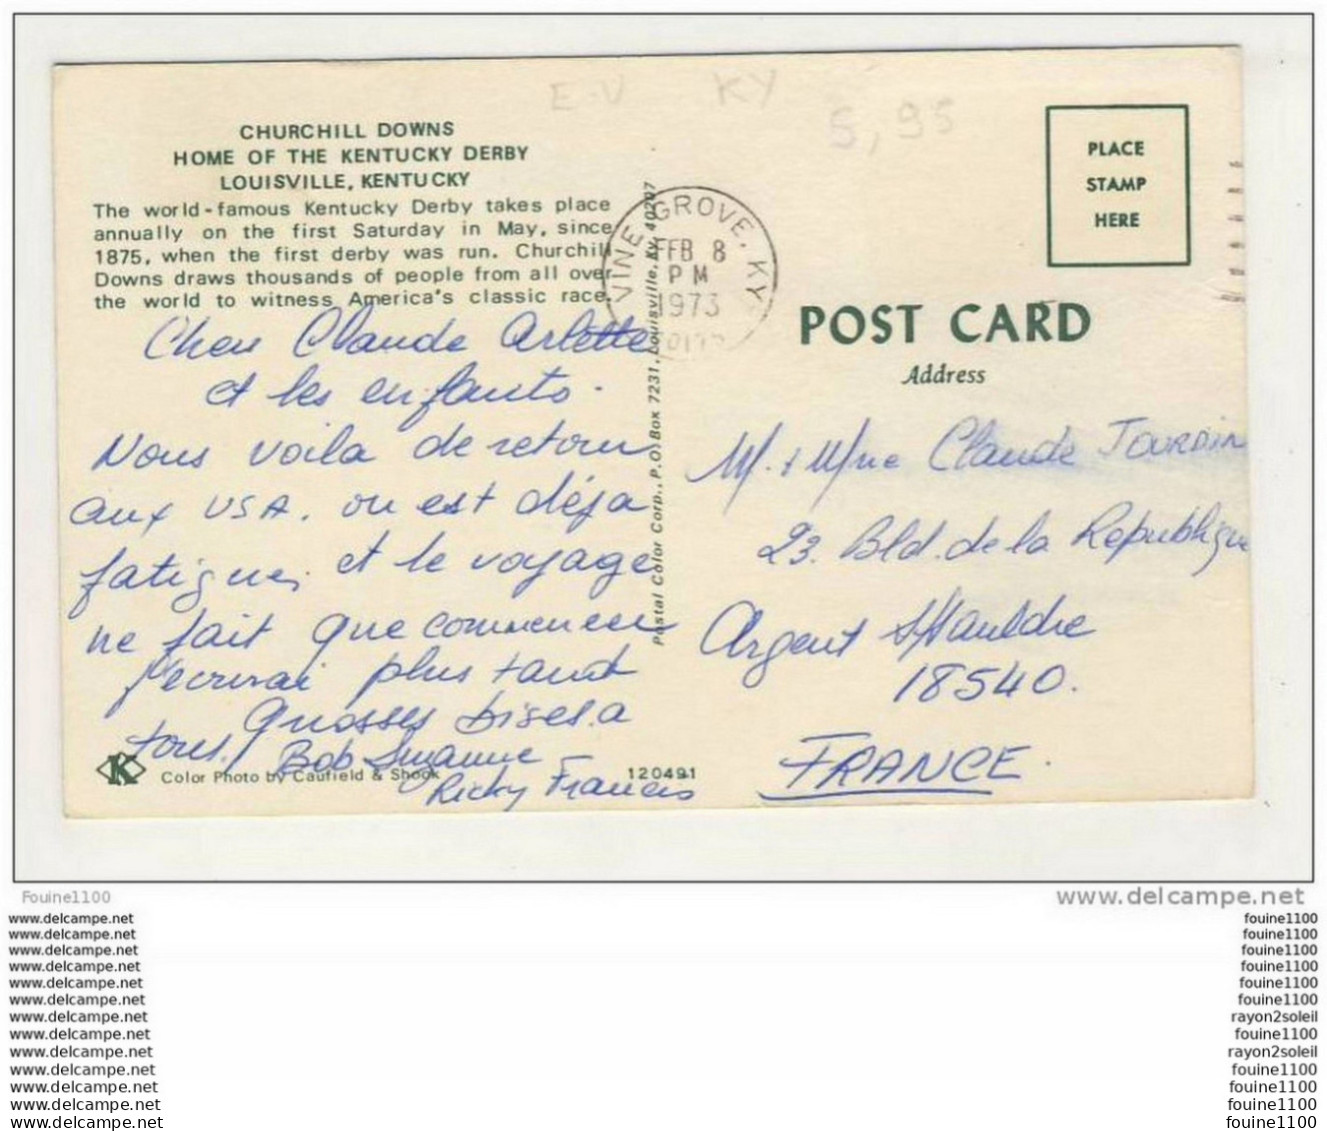 E-U KY
5,95
CHURCHILL DOWNS
HOME OF THE KENTUCKY DERBY
LOUISVILLE, KENTUCKY
The world-famous Kentucky Derby takes place
annually on the first Saturday in May, since
1875, when the first derby was run. Churchill
Downs draws thousands of people from all over
the world to witness America's classic race.
Cher Claude Arlette
et les enfants.
Nous voila de retour
aux USA. on est déja
fatigue, et le voyage
ne fait que commencer
J'ecrirai plus tard
Grosses bises a
tous. Bob Suzanne
Ricky Francis
K
Color Photo by Caufield & Shook
120491
Postal Color Corp., P.O. Box 7231, Louisville, Ky. 40207
VINE GROVE, KY
FEB 8
PM
1973
PLACE
STAMP
HERE
POST CARD
Address
M. + Mme Claude JOURDIN
23. Bld. de la Republique
Argent s/Sauldre
18540.
FRANCE.
Fouine1100
www.delcampe.net
www.delcampe.net
www.delcampe.net
www.delcampe.net
www.delcampe.net
www.delcampe.net
www.delcampe.net
www.delcampe.net
www.delcampe.net
www.delcampe.net
www.delcampe.net
www.delcampe.net
www.delcampe.net
www.delcampe.net
fouine1100
fouine1100
fouine1100
fouine1100
fouine1100
fouine1100
rayon2soleil
fouine1100
rayon2soleil
fouine1100
fouine1100
fouine1100
fouine1100